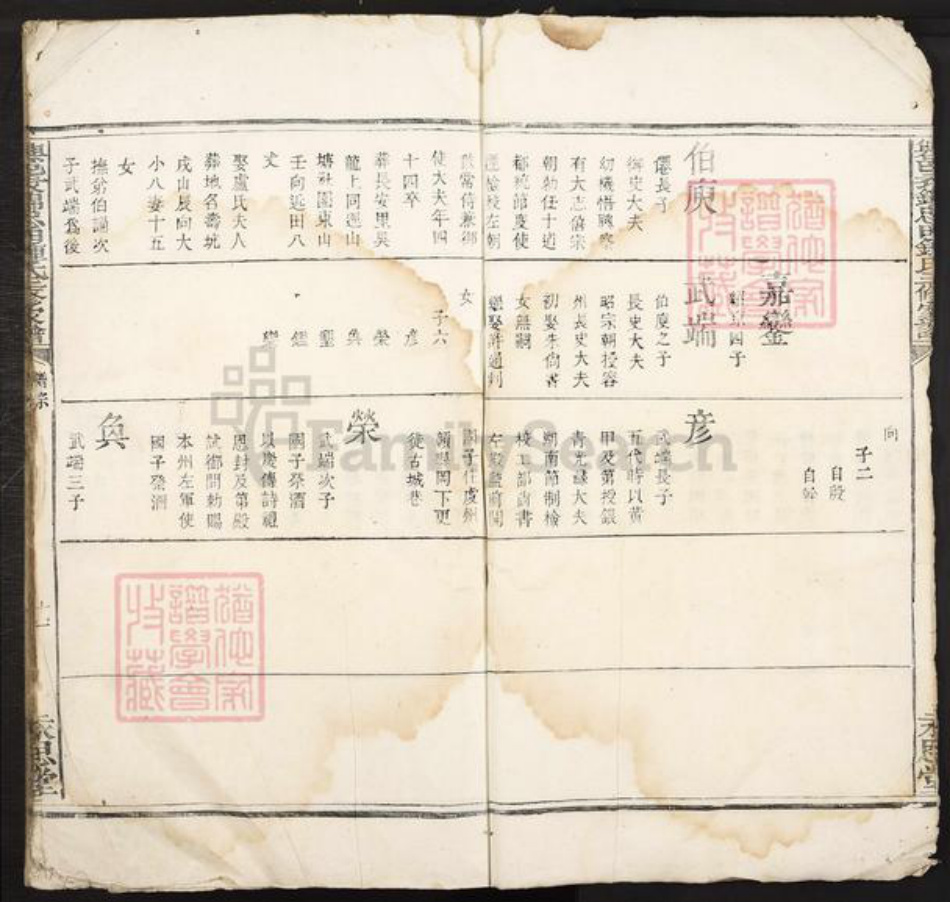 伯庾
僊長子
御史大夫
幼機悟聰察
有大志僖宗
朝勅任十道
都統節度使
左朝
散常侍兼御
使大夫年四
十四卒
葬長安里吳
龍上同逕山
塘社園東山
壬向远田八
丈
娶盧氏夫人
葬地名壽坑
戌山辰向大
小八妻十五
女
撫弟伯誦次
子武端爲後
嘉鑾
四子
武端
伯庾之子
長史大夫
昭宗朝授容
州長史大夫
初娶朱尙書
女無嗣
繼娶許通判
女 子六
彥
榮
奐
鑑
向
子二
自殷
自幹
彥
武端長子
五代時以黃
甲及第授銀
青光祿大夫
湖南節制檢
校工部尚書
國子住虔州
徙古城巷
榮
武端次子
國子祭酒
以慶傳詩禮
恩封及第殿
試御問勅賜
本州左軍使
國子祭酒
奐
武端三子
永思堂
永思堂
FamilySearch
譜學會
收藏
譜學會
收藏